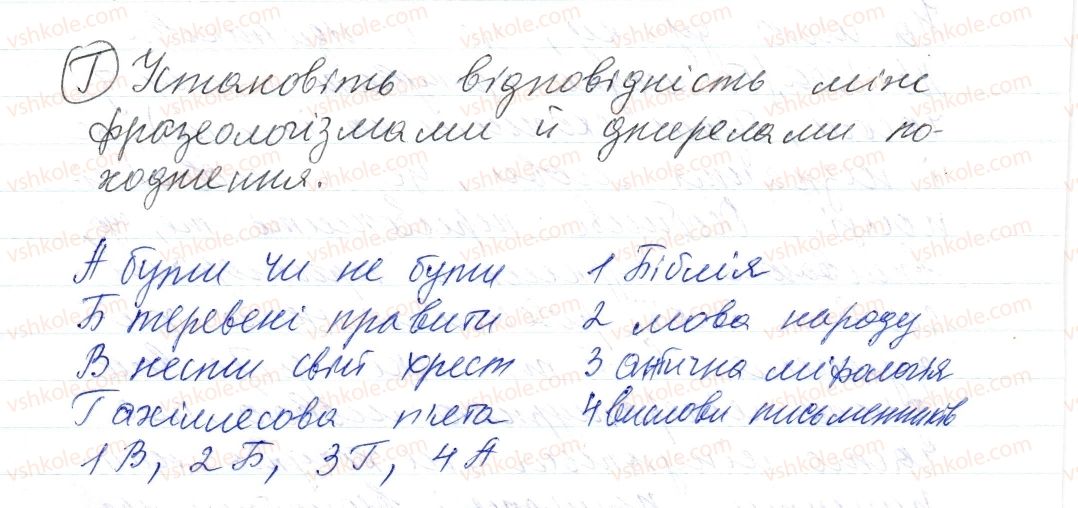 I Установіть відповідність між
фразеологізмами й джерелами по-
ходження.
А бути чи не бути 1 Біблія
Б теревені правити 2 мова народу
В нести свій хрест 3 антична міфологія
Г ахіллесова п'ята 4 вислови письменників
1 В, 2 Б, 3 Г, 4 А